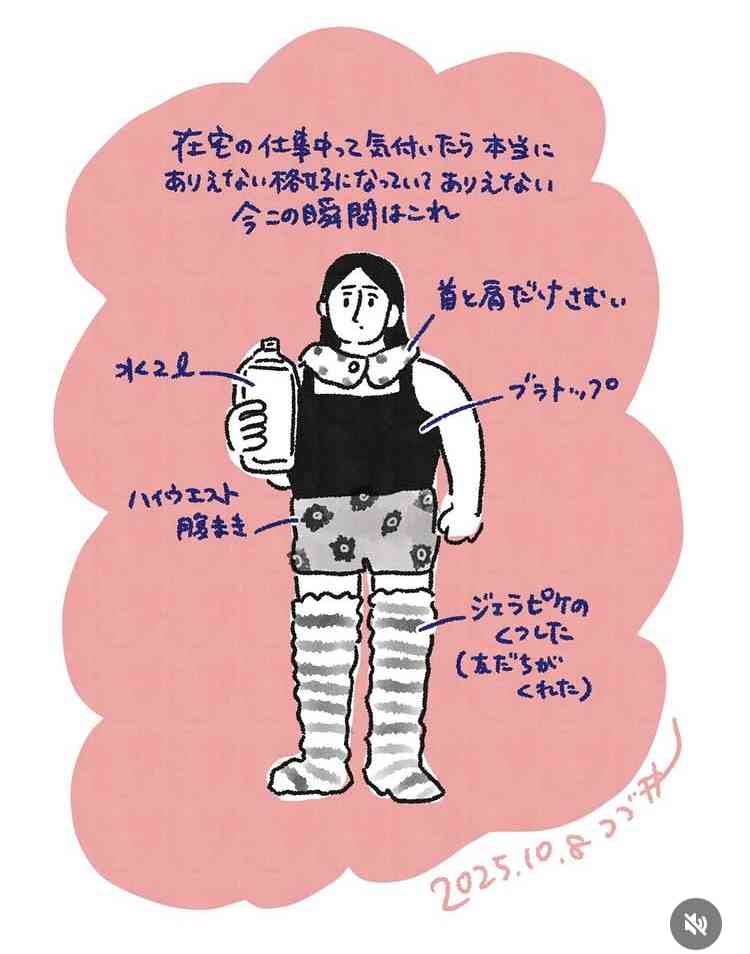 在宅の仕事中って気付いたら 本当に
ありえない格好になっていて ありえない
今この瞬間はこれ
首と肩だけさむい
水2ℓ
ブラトップ
ハイウエスト
腹まき
ジェラピケの
くつした
(友だちが
くれた)
2025.10.8 つづ井